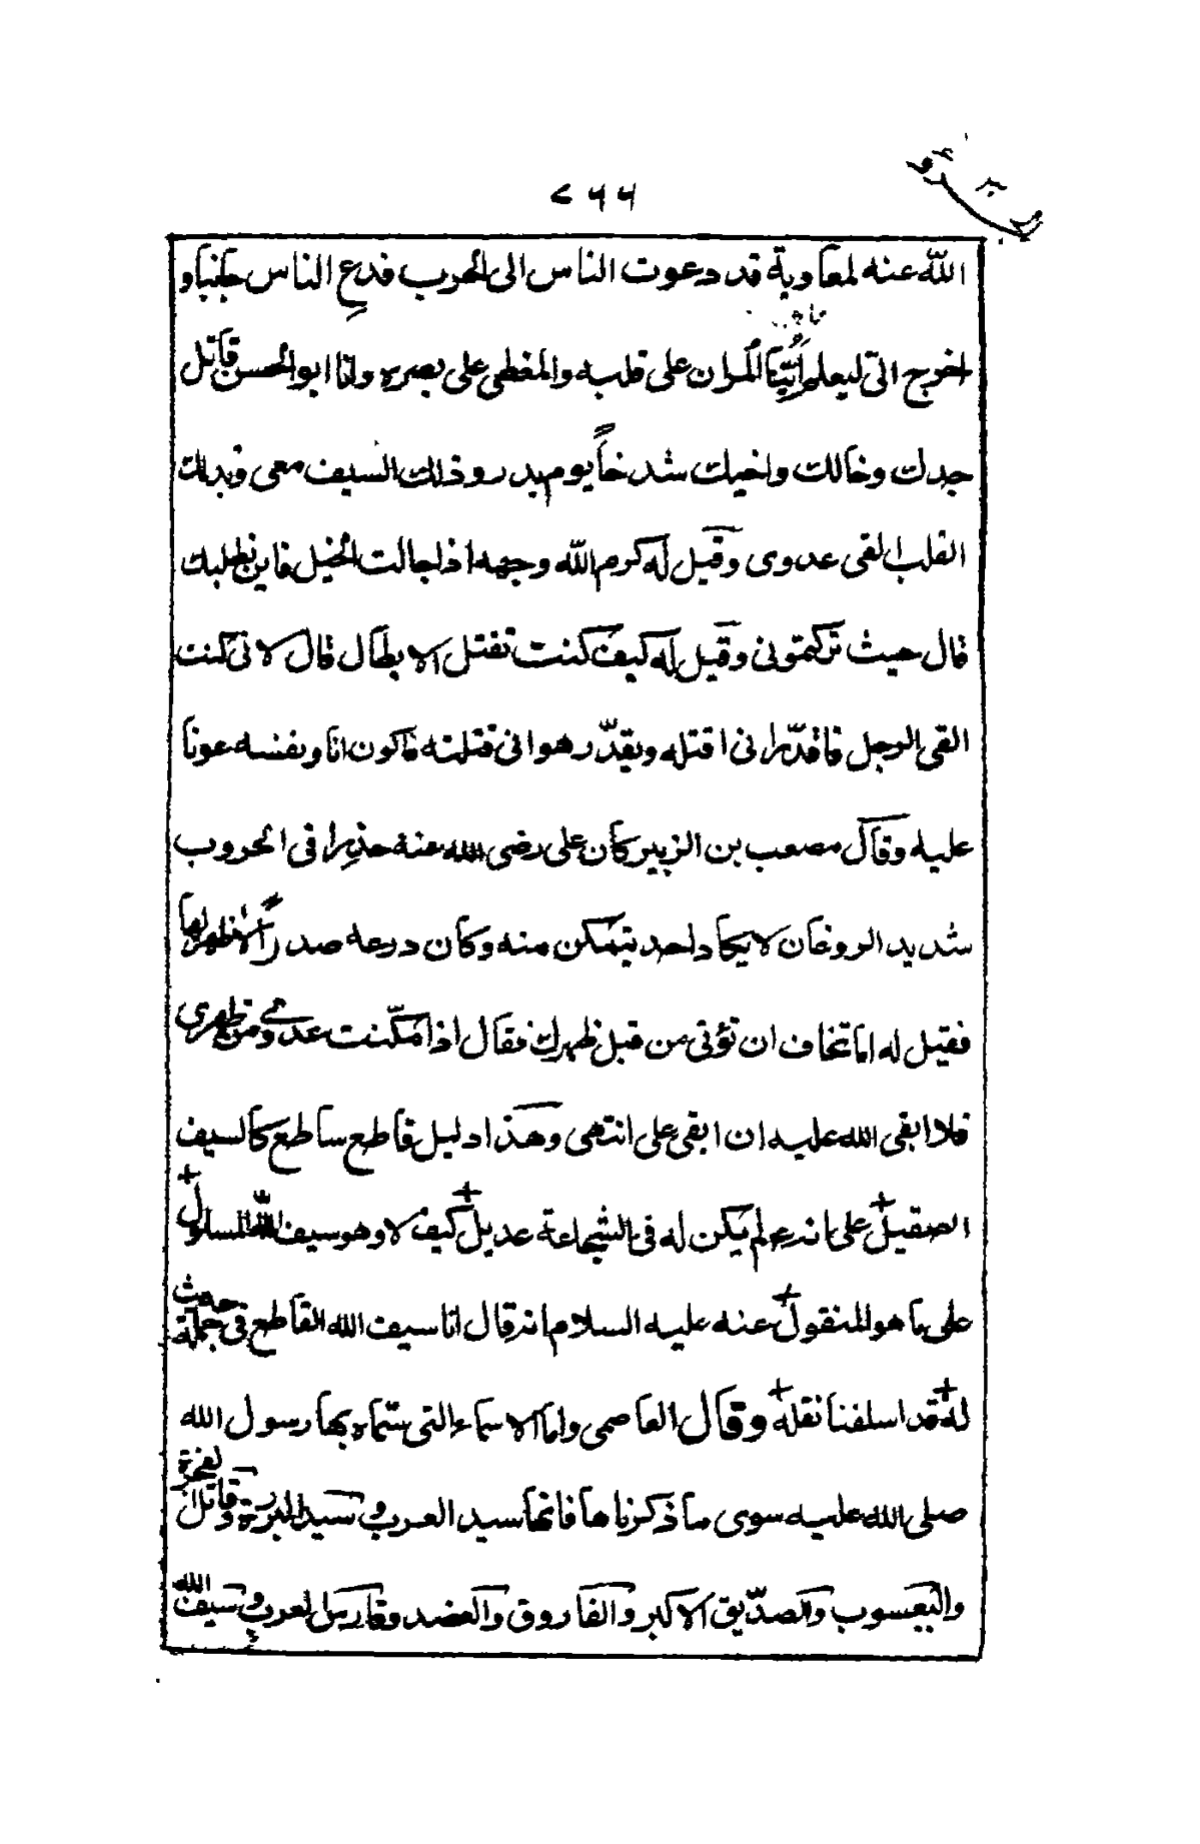 ٧٦٦
الله عنه لمعاوية قد دعوت الناس الى الحرب فدع الناس جانبا و
اخرج الىّ ليعلم ايّنا المران على قلبه والمغطى على بصره وانا ابو الحسن قاتل
جدك وخالك واخيك شدخاً يوم بدر وذلك السيف معى وبذلك
القلب القى عدوى وقيل له كرم الله وجهه اذا جالت الخيل فاين نطلبك
قال حيث تركتمونى وقيل له كيف كنت تقتل الابطال قال لانى كنت
القى الرجل فاقدّر انى اقتله ويقدّر هو انى قتلته فاكون انا ونفسه عونا
عليه وقال مصعب بن الزبير كان على رضى الله عنه حذِرا فى الحروب
شديد الروغان لا يكاد احد يتمكن منه وكان درعه صدرًا لا ظهر لها
فقيل له اما تخاف ان تؤتى من قبل ظهرك فقال اذا مكّنت عدوى من ظهرى
فلا ابقى الله عليه ان ابقى على انتهى وهذا دليل قاطع ساطع كالسيف
الصقيل على انه لم يكن له فى الشجاعة عديل كيف لا وهو سيف الله المسلول
على ما هو المنقول عنه عليه السلام انه قال انا سيف الله القاطع فى جملة حديث
له قد اسلفنا نقله وقال العاصمى واما الاسماء التى سمّاه بها رسول الله
صلى الله عليه سوى ما ذكرناها فانها سيد العرب و سيد البررة وقاتل الفجرة
واليعسوب والصدّيق الاكبر والفاروق والعضد وفارس العرب و سيف الله